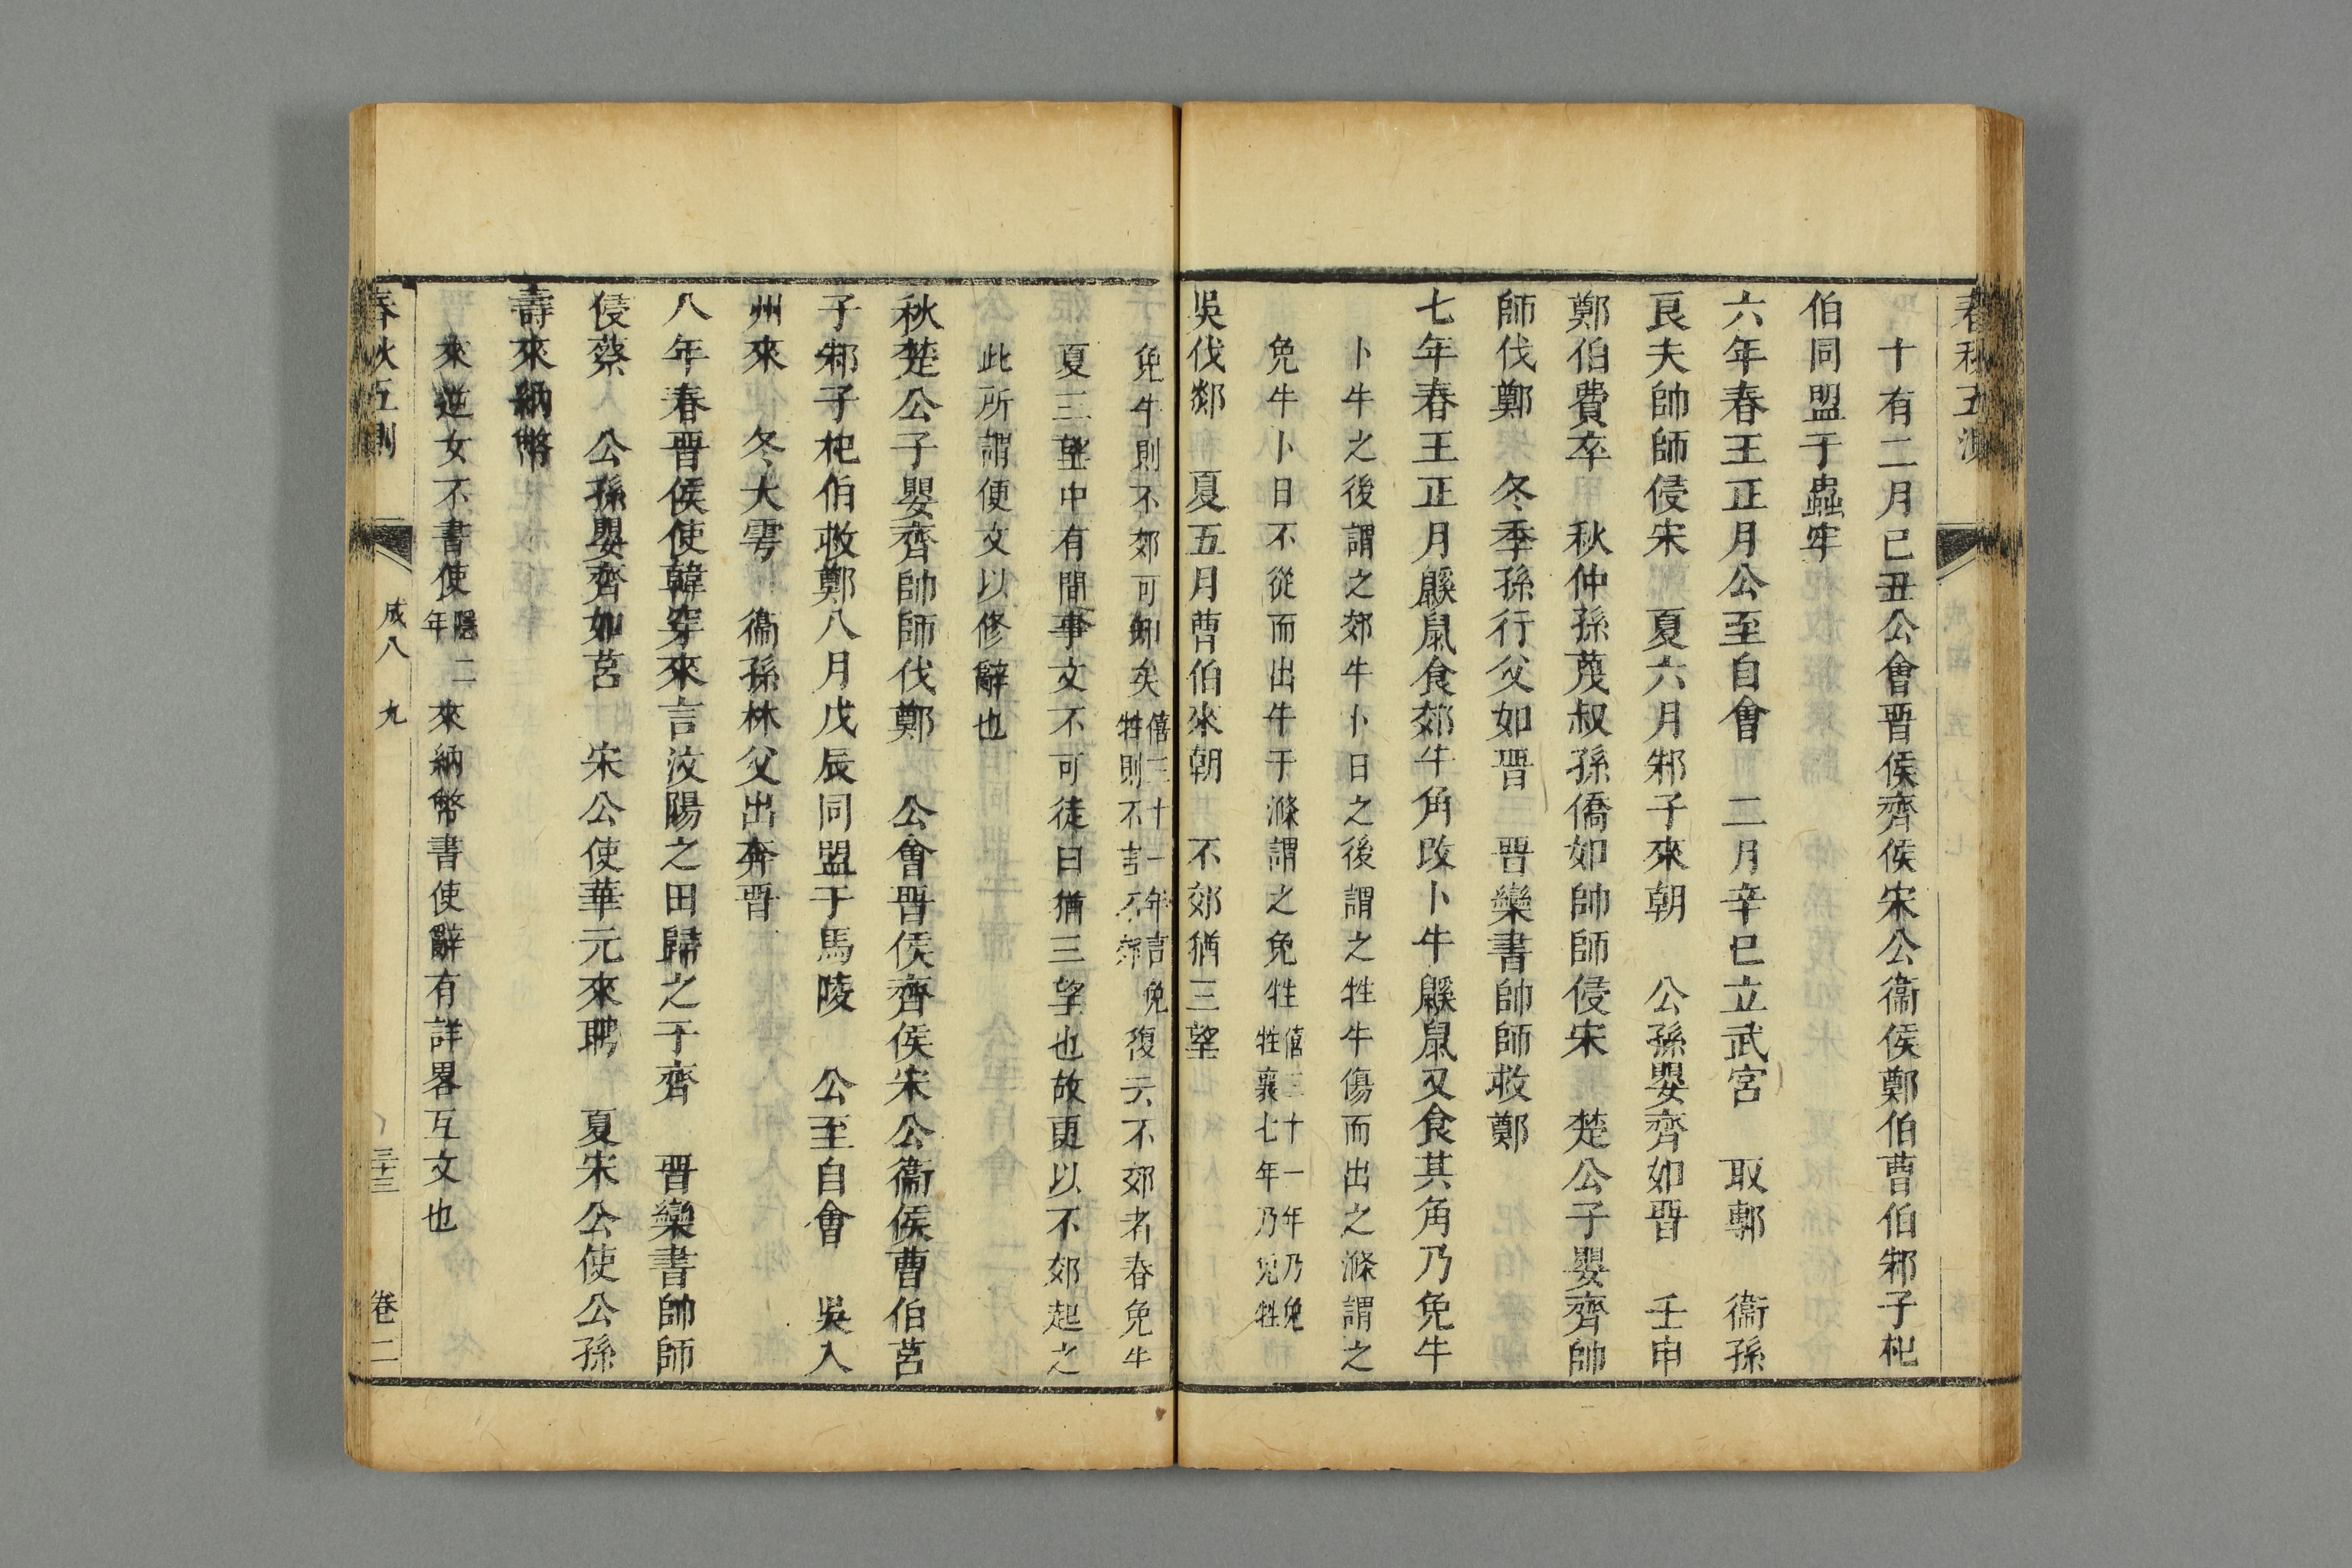 春秋五測
十有二月已丑公會晋侯齊侯宋公衞侯鄭伯曹伯邾子杞
伯同盟于蟲牢
六年春王正月公至自會　二月辛巳立武宮　取鄟　衞孫
良夫帥師侵宋　夏六月邾子來朝　公孫嬰齊如晋　壬申
鄭伯費卒　秋仲孫蔑叔孫僑如帥師侵宋　楚公子嬰齊帥
師伐鄭　冬季孫行父如晋　晋欒書帥師救鄭
七年春王正月鼷鼠食郊牛角改卜牛鼷鼠又食其角乃免牛
卜牛之後謂之郊牛卜日之後謂之牲牛傷而出之滌謂之
免牛卜日不從而出牛于滌謂之免牲僖三十一年乃免牲襄七年乃免牲
吳伐郯　夏五月曹伯來朝　不郊猶三望
免牛則不郊可知矣僖三十一年言免牲則不言不郊復云不郊者春免牛
夏三望中有間事文不可徒曰猶三望也故更以不郊起之
此所謂便文以修辭也
秋楚公子嬰齊帥師伐鄭　公會晋侯齊侯宋公衞侯曹伯莒
子邾子杞伯救鄭八月戊辰同盟于馬陵　公至自會　吳入
州來　冬大雩　衞孫林父出奔晋
八年春晋侯使韓穿來言汶陽之田歸之于齊　晋欒書帥師
侵蔡　公孫嬰齊如莒　宋公使華元來聘　夏宋公使公孫
壽來納幣
來逆女不書使隱二年來納幣書使辭有詳畧互文也
春秋五測　成八　九　三十三　卷二